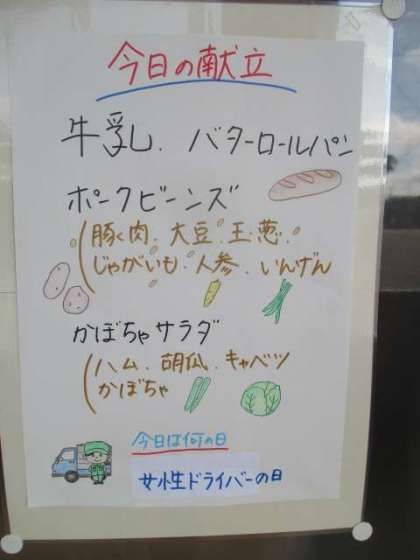 今日の献立
牛乳. バターロールパン
ポークビーンズ
(豚肉. 大豆. 玉葱.
じゃがいも. 人参. いんげん
かぼちゃサラダ
(ハム. 胡瓜. キャベツ
かぼちゃ
今日は何の日
女性ドライバーの日